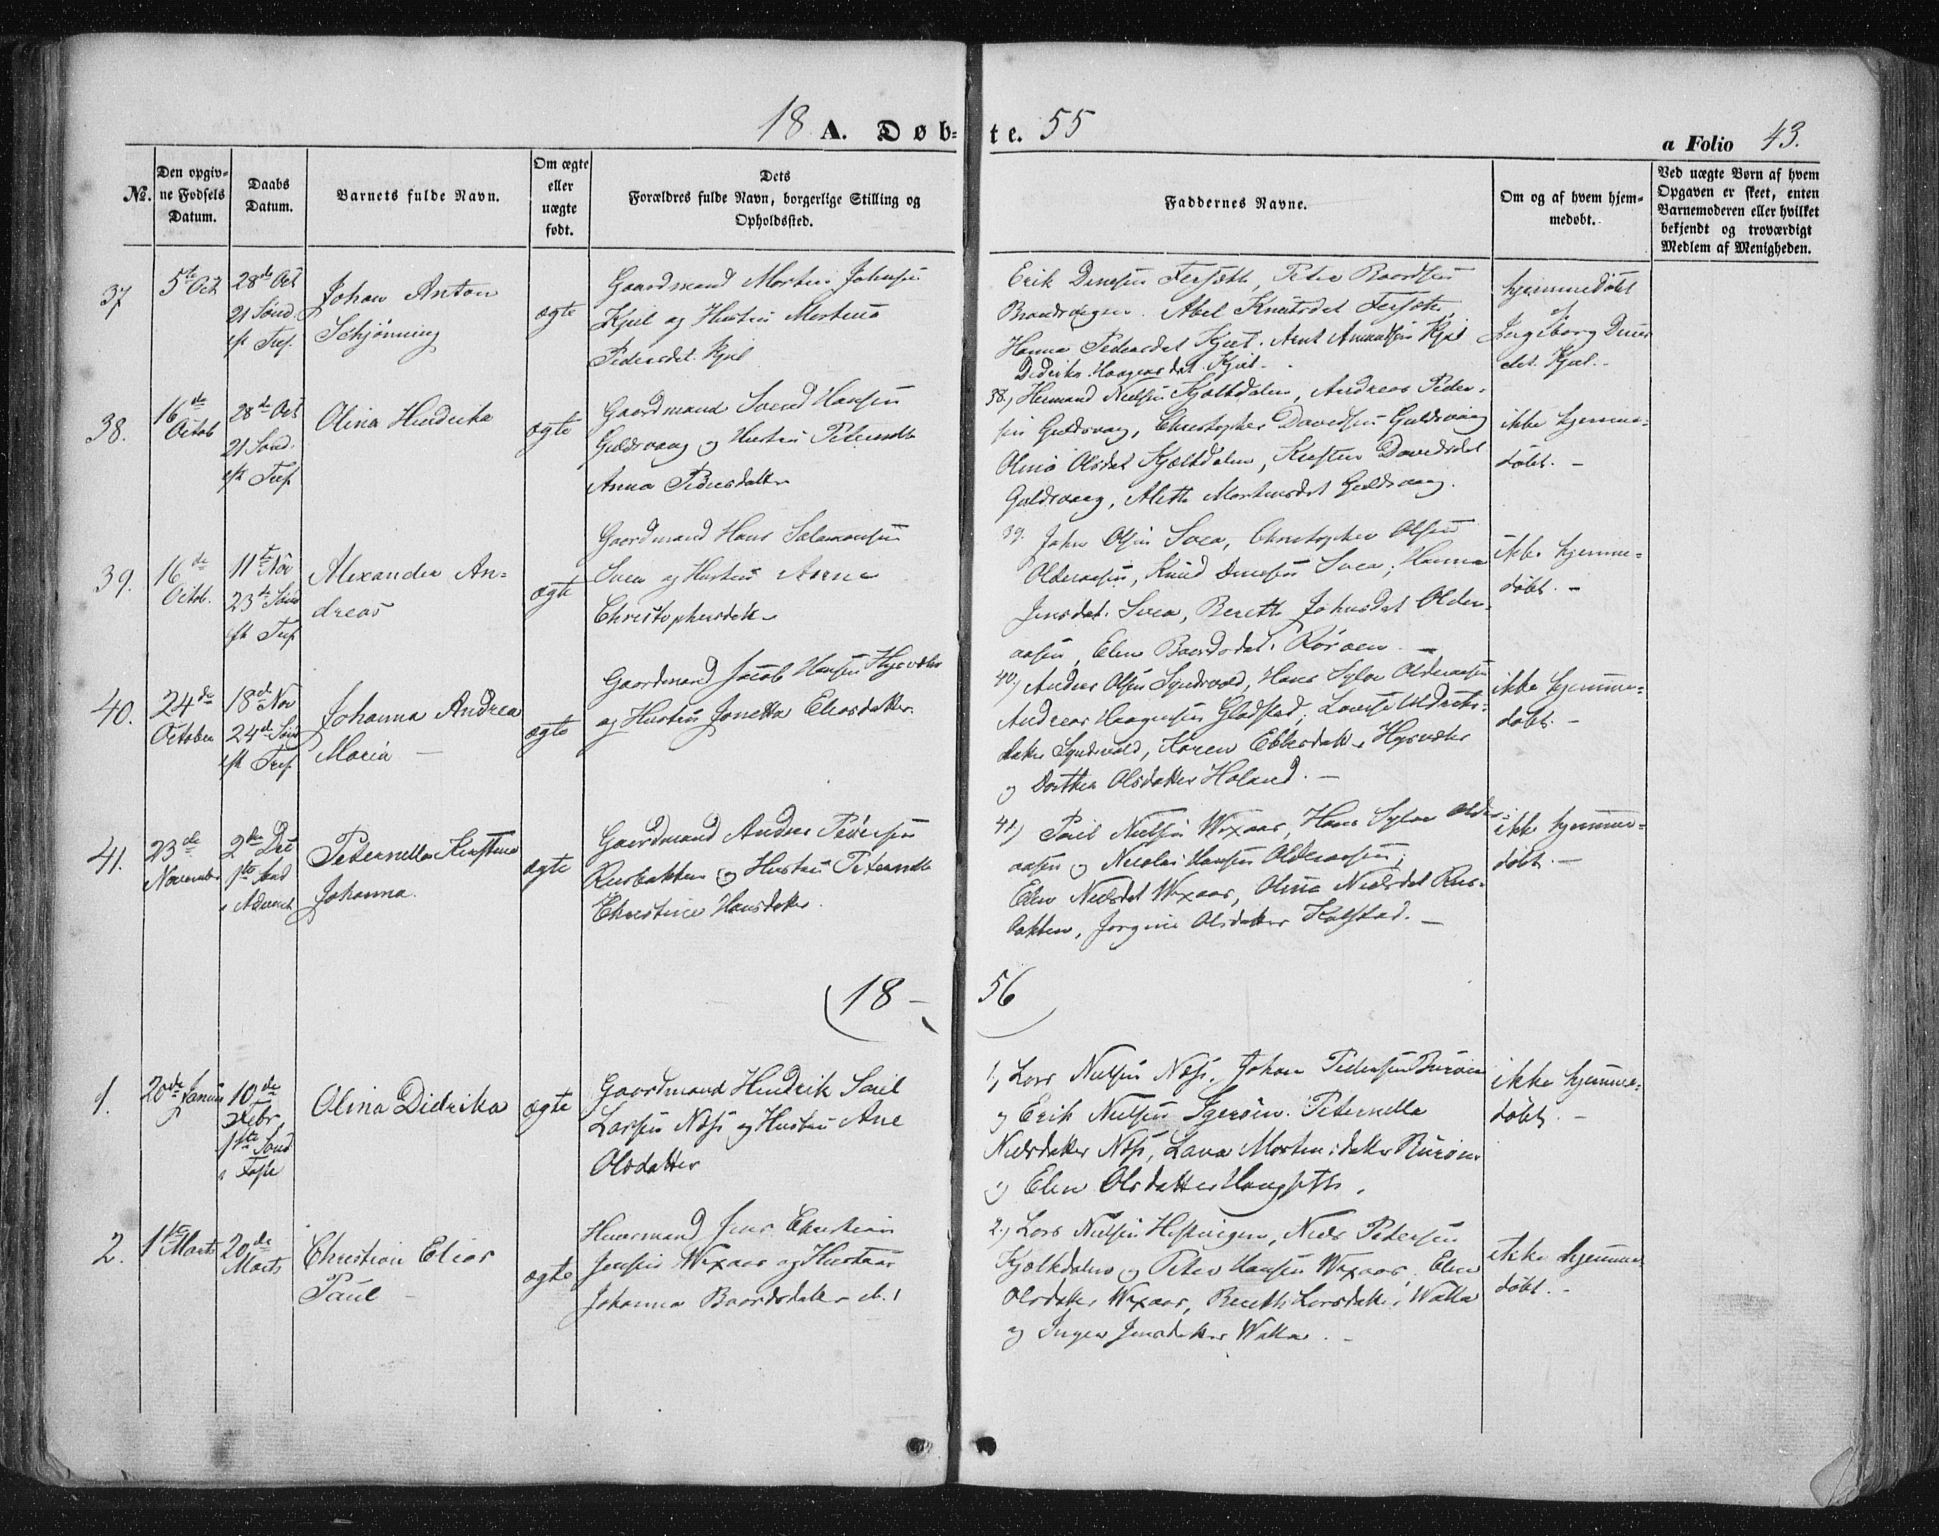 18 A. Døb- te. 55
a Folio 43.
No. Den opgivne Fødsels Datum. Daabs Datum. Barnets fulde Navn. Om ægte eller uægte født. Dets Forældres fulde Navn, borgerlige Stilling og Opholdssted.
Faddernes Navne. Om og af hvem hjemmedøbt. Ved uægte Børn af hvem Opgaven er skeet, enten Barnemoderen eller hvilket bekjendt og troværdigt Medlem af Menigheden.
37 5te Oct 28de Oct
21 Sønd.
eft Tref.
Johan Anton
Schjønning
ægte
Gaardmand Morten Johnsen
Kjel og Hustru
Pedersdat. Kjel
Erik Ferseth, Peder Baardsen
Abel Knutsdat
Hanna Pedersdat Kjel. Arnt Kjel
Didrika Haagensdat. Kjel.
hjemmedøbt
af
Ingeborg
dat. Kjel.
38. 16de
Octob
28de Oct
21 Sønd.
eft Tref
Olina Hendrika
ægte
Gaardmand Svend Hansen
Guldsvaag og Hustru
Anna Pedersdatter
38.) Hermand Nielsen Kjølkdalen, Andreas Peder-
sen Guldsvaag, Christopher Davidsen Guldsvaag
Olina Olsdat Kjølkdalen, Kirsten Davidsdat
Guldsvaag, Aleth Mortensdat Guldsvaag.
ikke hjemme-
døbt. -
39. 16de
Octob.
11te Nov
23de Sønd
eft Tref
Alexander An-
dreas
ægte
Gaardmand Hans Salamonsen
Svea og Hustru Anne
Christophersdatt
39. John Olsen Svea, Christopher Olsen
Olderaasen, Knud Svea, Hanna
Jensdat. Svea, Bereth Johnsdat Older-
aasen, Elen Baardsdat. Rørøen. -
ikke hjemme-
døbt. -
40. 24de
October
18de Nov
24de Sønd
eft Tref
Johanna Andrea
Maria -
ægte
Gaardmand Jacob Hansen
og Hustru Jonetta Eliasdatter.
40.) Andreas Olsen Syndsvold, Hans Sylve Olderaasen
Andreas Haagensen Gladstad, Lovise
datter Syndsvold, Karen Ebbesdatter
og Dorthea Olsdatter Holand. -
ikke hjemme-
døbt. -
41. 23de
November
2den Dec
1ste Sønd
i Advent
Peternella Kirstina
Johanna.
ægte
Gaardmand Anders Pedersen
Rusbakken og Hustru
Christine Hansdatter.
41.) Paul Nielsen Wexaas, Hans Sylve Older-
aasen og Nicolai Hansen Olderaasen;
Elen Nielsdat Wexaas, Olina Nielsdat Rus-
bakken, Jorgine Olsdatter Kolstad. -
ikke hjemme-
døbt. -
18 - 56
1. 20de Januar
10de
Febr
1ste Sønd
i Faste
Olina Didrika
ægte
Gaardmand Hendrik Paul
Larsen Næss og Hustru Ane
Olsdatter
1.) Lars Nielsen Næss, Johan Pedersen Burøen
og Erik Nielsen Igerøen. Peternella
Nielsdatter Næss, Lava Mortensdatter Burøen
og Elen Olsdatter Haugseth.
ikke hjemme-
døbt. -
2. 1ste Marts
20de
Marts
Christian Elias
Paul -
ægte
Huusmand Jens Christian
Jensen Wexaas og Hustru
Johanna Baardsdatter
2.) Lars Nielsen Niels Pedersen
Kjølkdalen og Peter Hansen Wexaas, Elen
Olsdatter Wexaas, Bereth Larsdatter Walla
og Inger Jensdatter Walla. -
ikke hjemme-
døbt. -